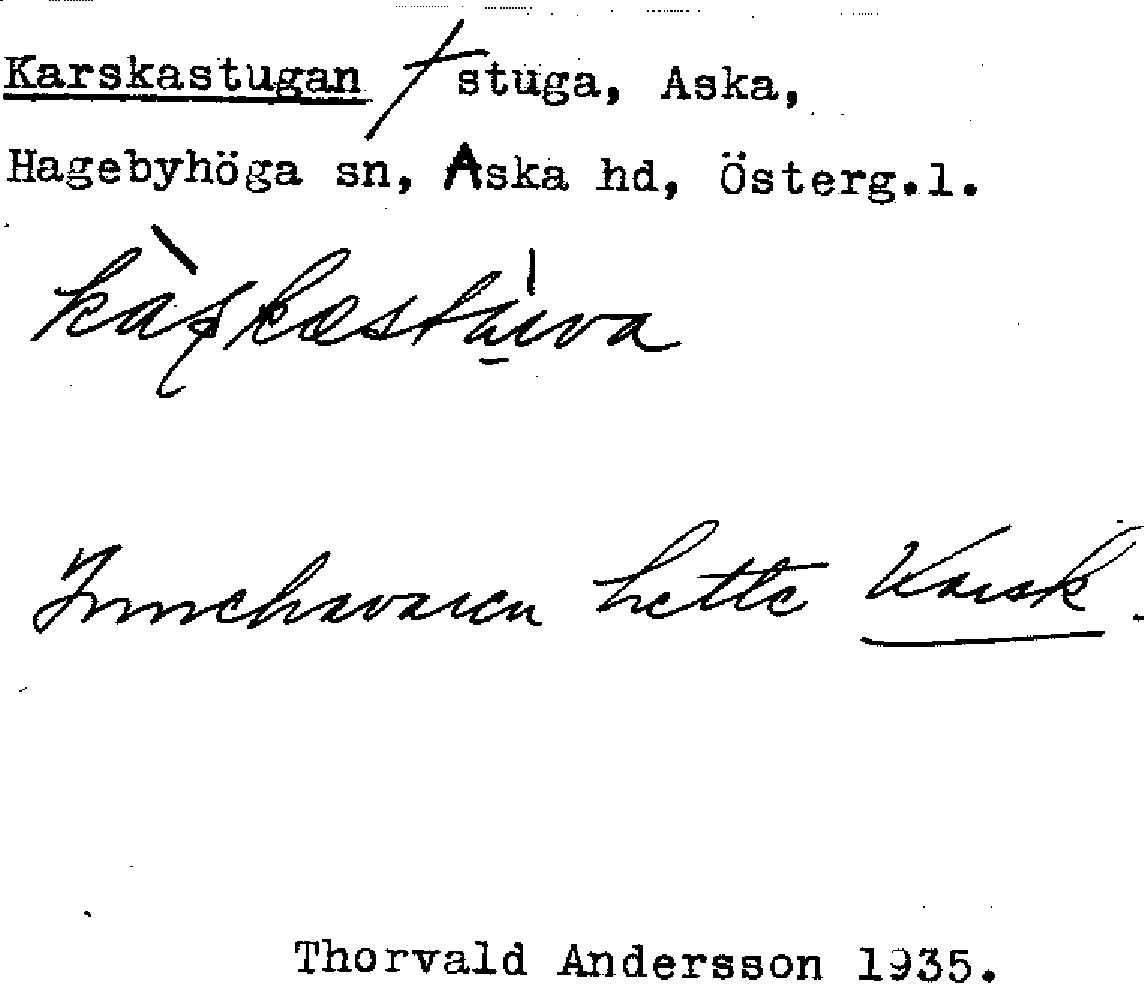 Karskastugan † stuga, Aska,
Hagebyhöga sn, Aska hd, Österg.l.
Innehavaren hette Karsk.
Thorvald Andersson 1935.